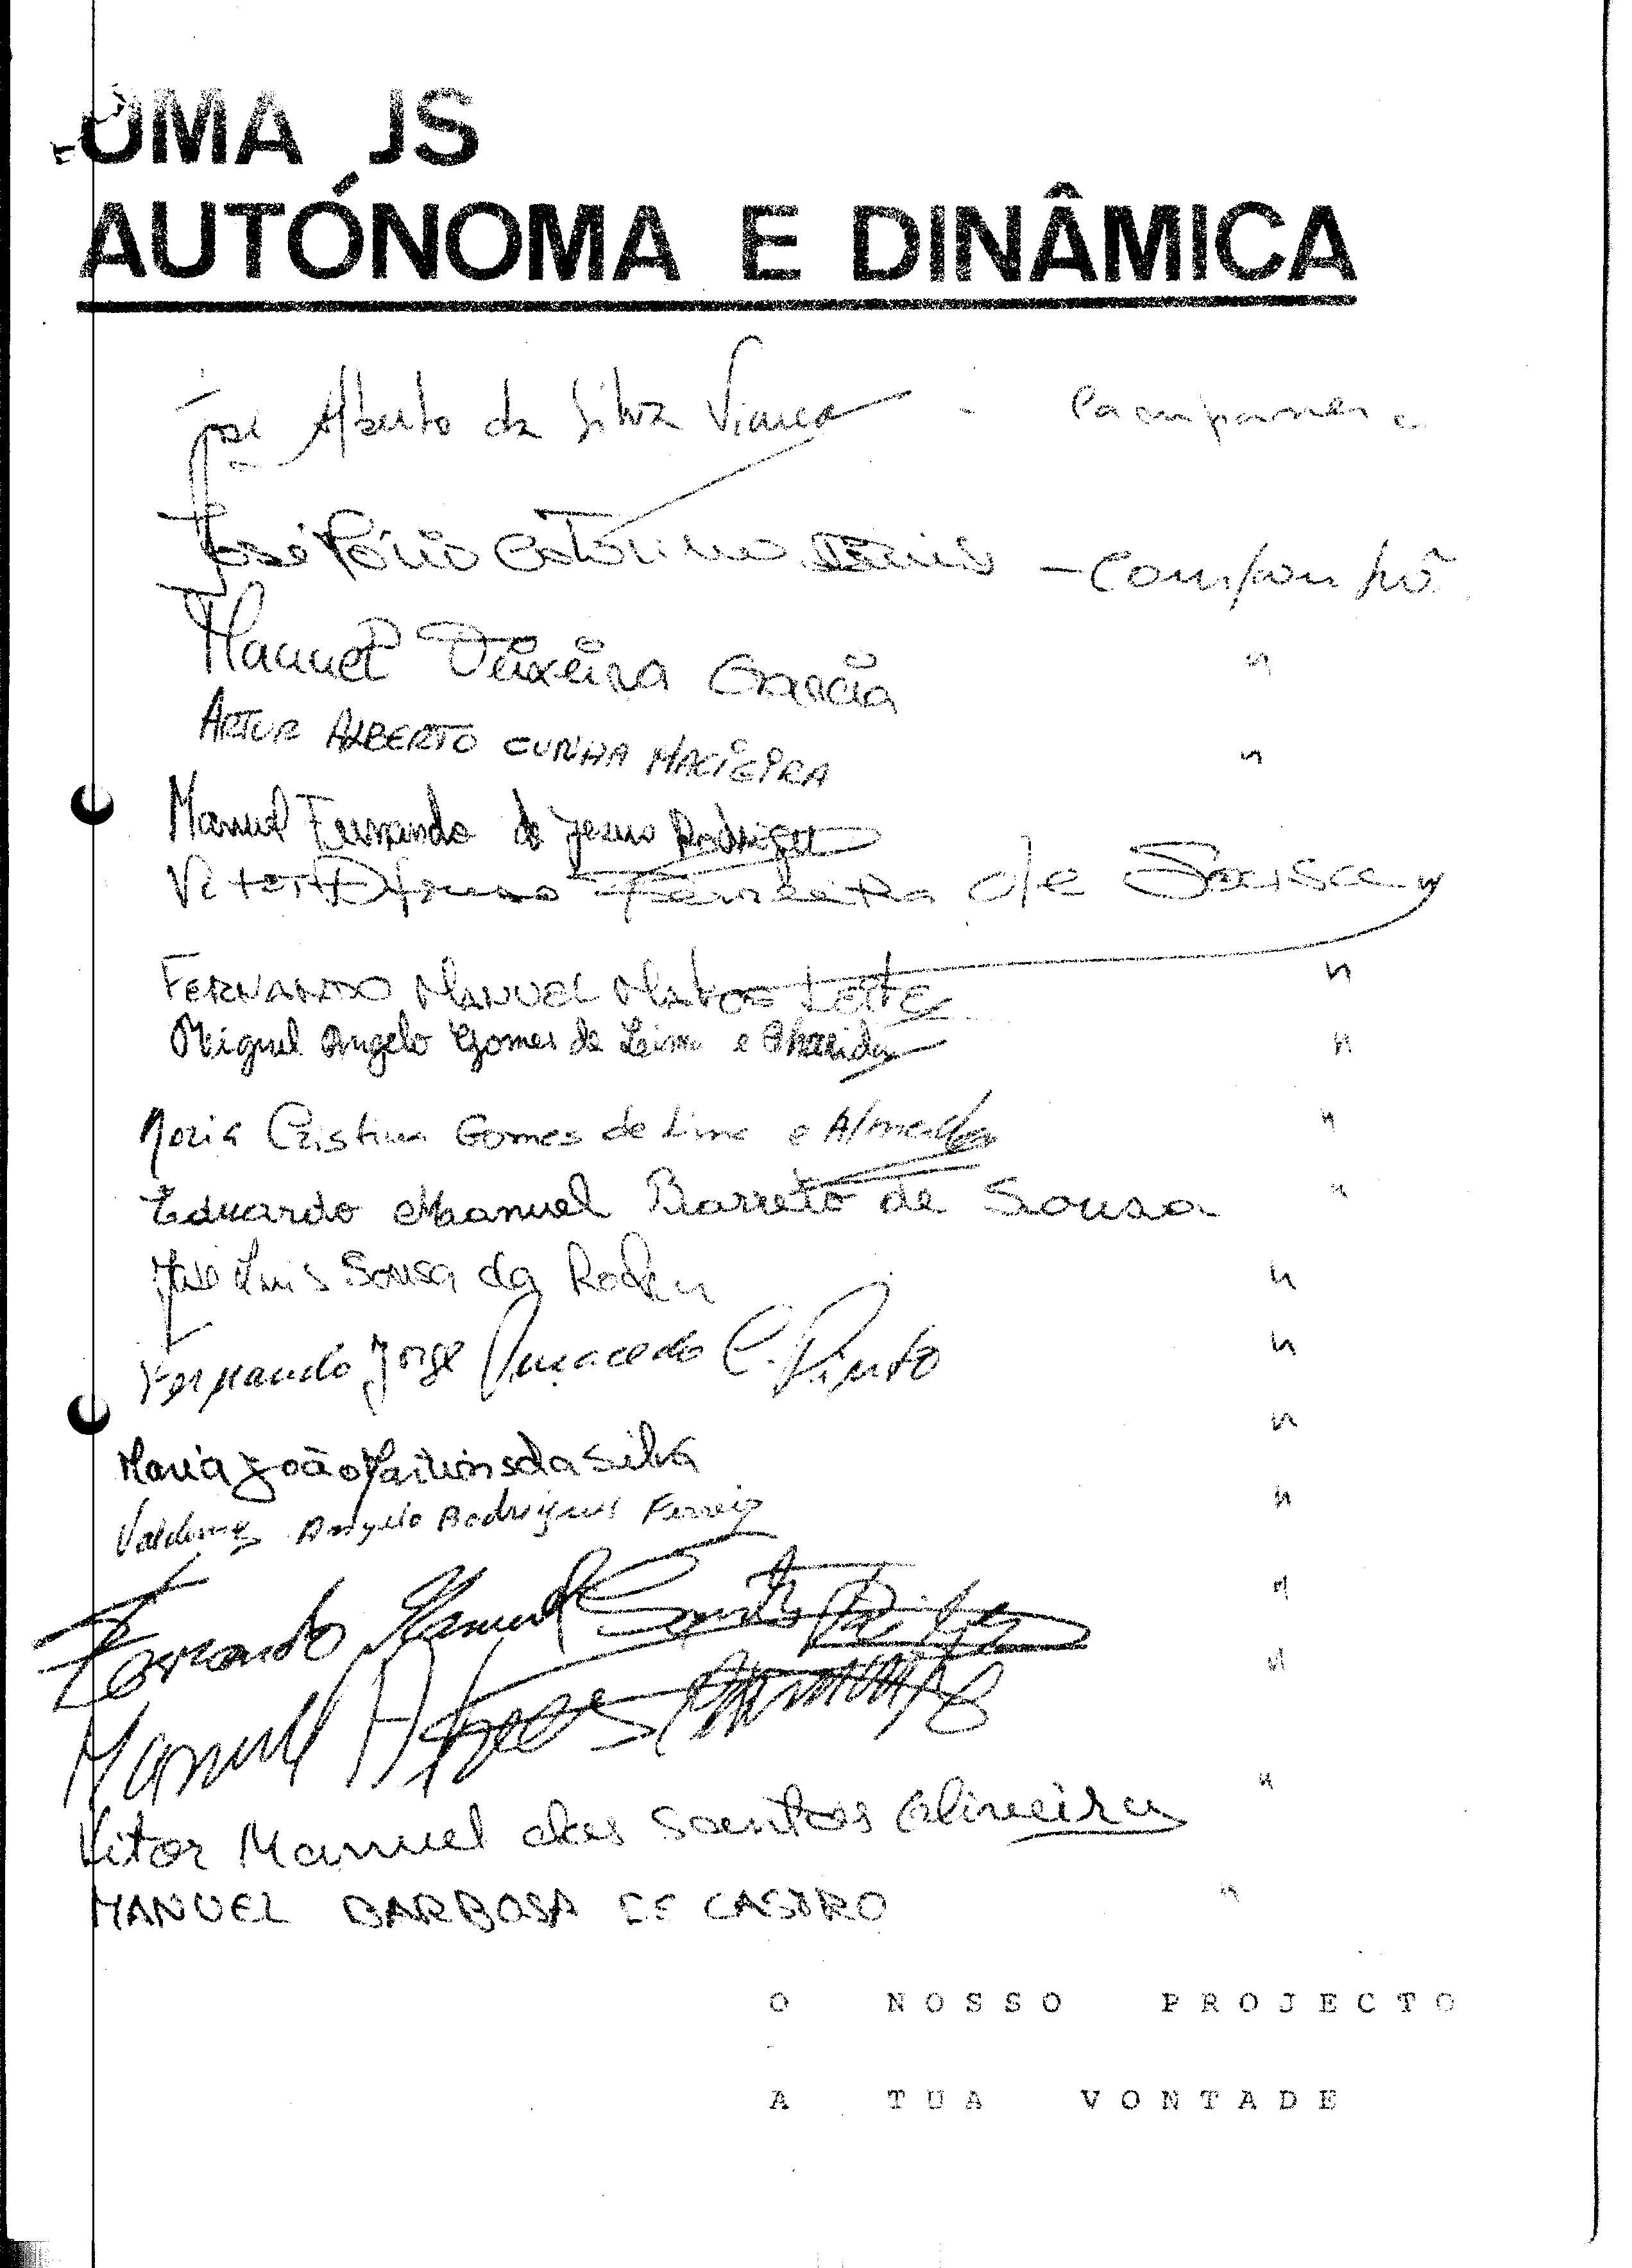 UMA JS
AUTÓNOMA E DINÂMICA
José Alberto da Silva Viana -
José Catarino - Campanhã
Manuel Teixeira Garcia "
ARTUR ALBERTO CUNHA MACIEIRA "
Manuel Fernando de Jesus Rodrigues
Vitor Afonso Ferreira de Sousa "
FERNANDO MANUEL Matos LEITE "
Miguel Angelo Gomes de Lima e Almeida "
Maria Cristina Gomes de Lima e Almeida "
Eduardo Manuel Barreto de Sousa "
José Luis Sousa da Rocha "
Fernando Jorge Macedo C. Pinto "
Maria João Martins da Silva "
Valdemar Angelo Rodrigues Ferreira "
Fernando Manuel Santos "
Manuel "
Vitor Manuel dos Santos Oliveira "
MANUEL BARBOSA DE CASTRO "
O NOSSO PROJECTO
A TUA VONTADE